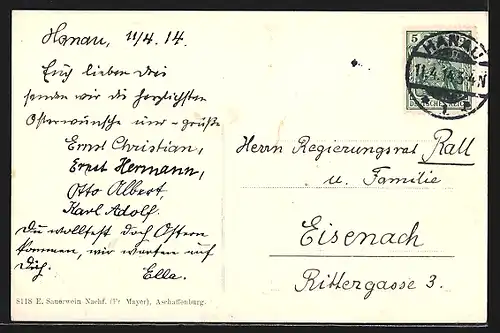 Hanau, 11/4. 14.
Euch lieben Drei
senden wir die herzlichsten
Osterwünsche und - grüße
Ernst Christian,
Ernst Hermann,
Otto Albert,
Karl Adolf.
Du wolltest doch Ostern
kommen, wir warten auf
Dich.
Ella.
8118 E. Sauerwein Nachf. (Fr. Mayer), Aschaffenburg.
5
DEUTSCHES REICH
HANAU
11.4.14.3-4N
1
Herrn Regierungsrat Rall
u. Familie
Eisenach
Rittergasse 3.